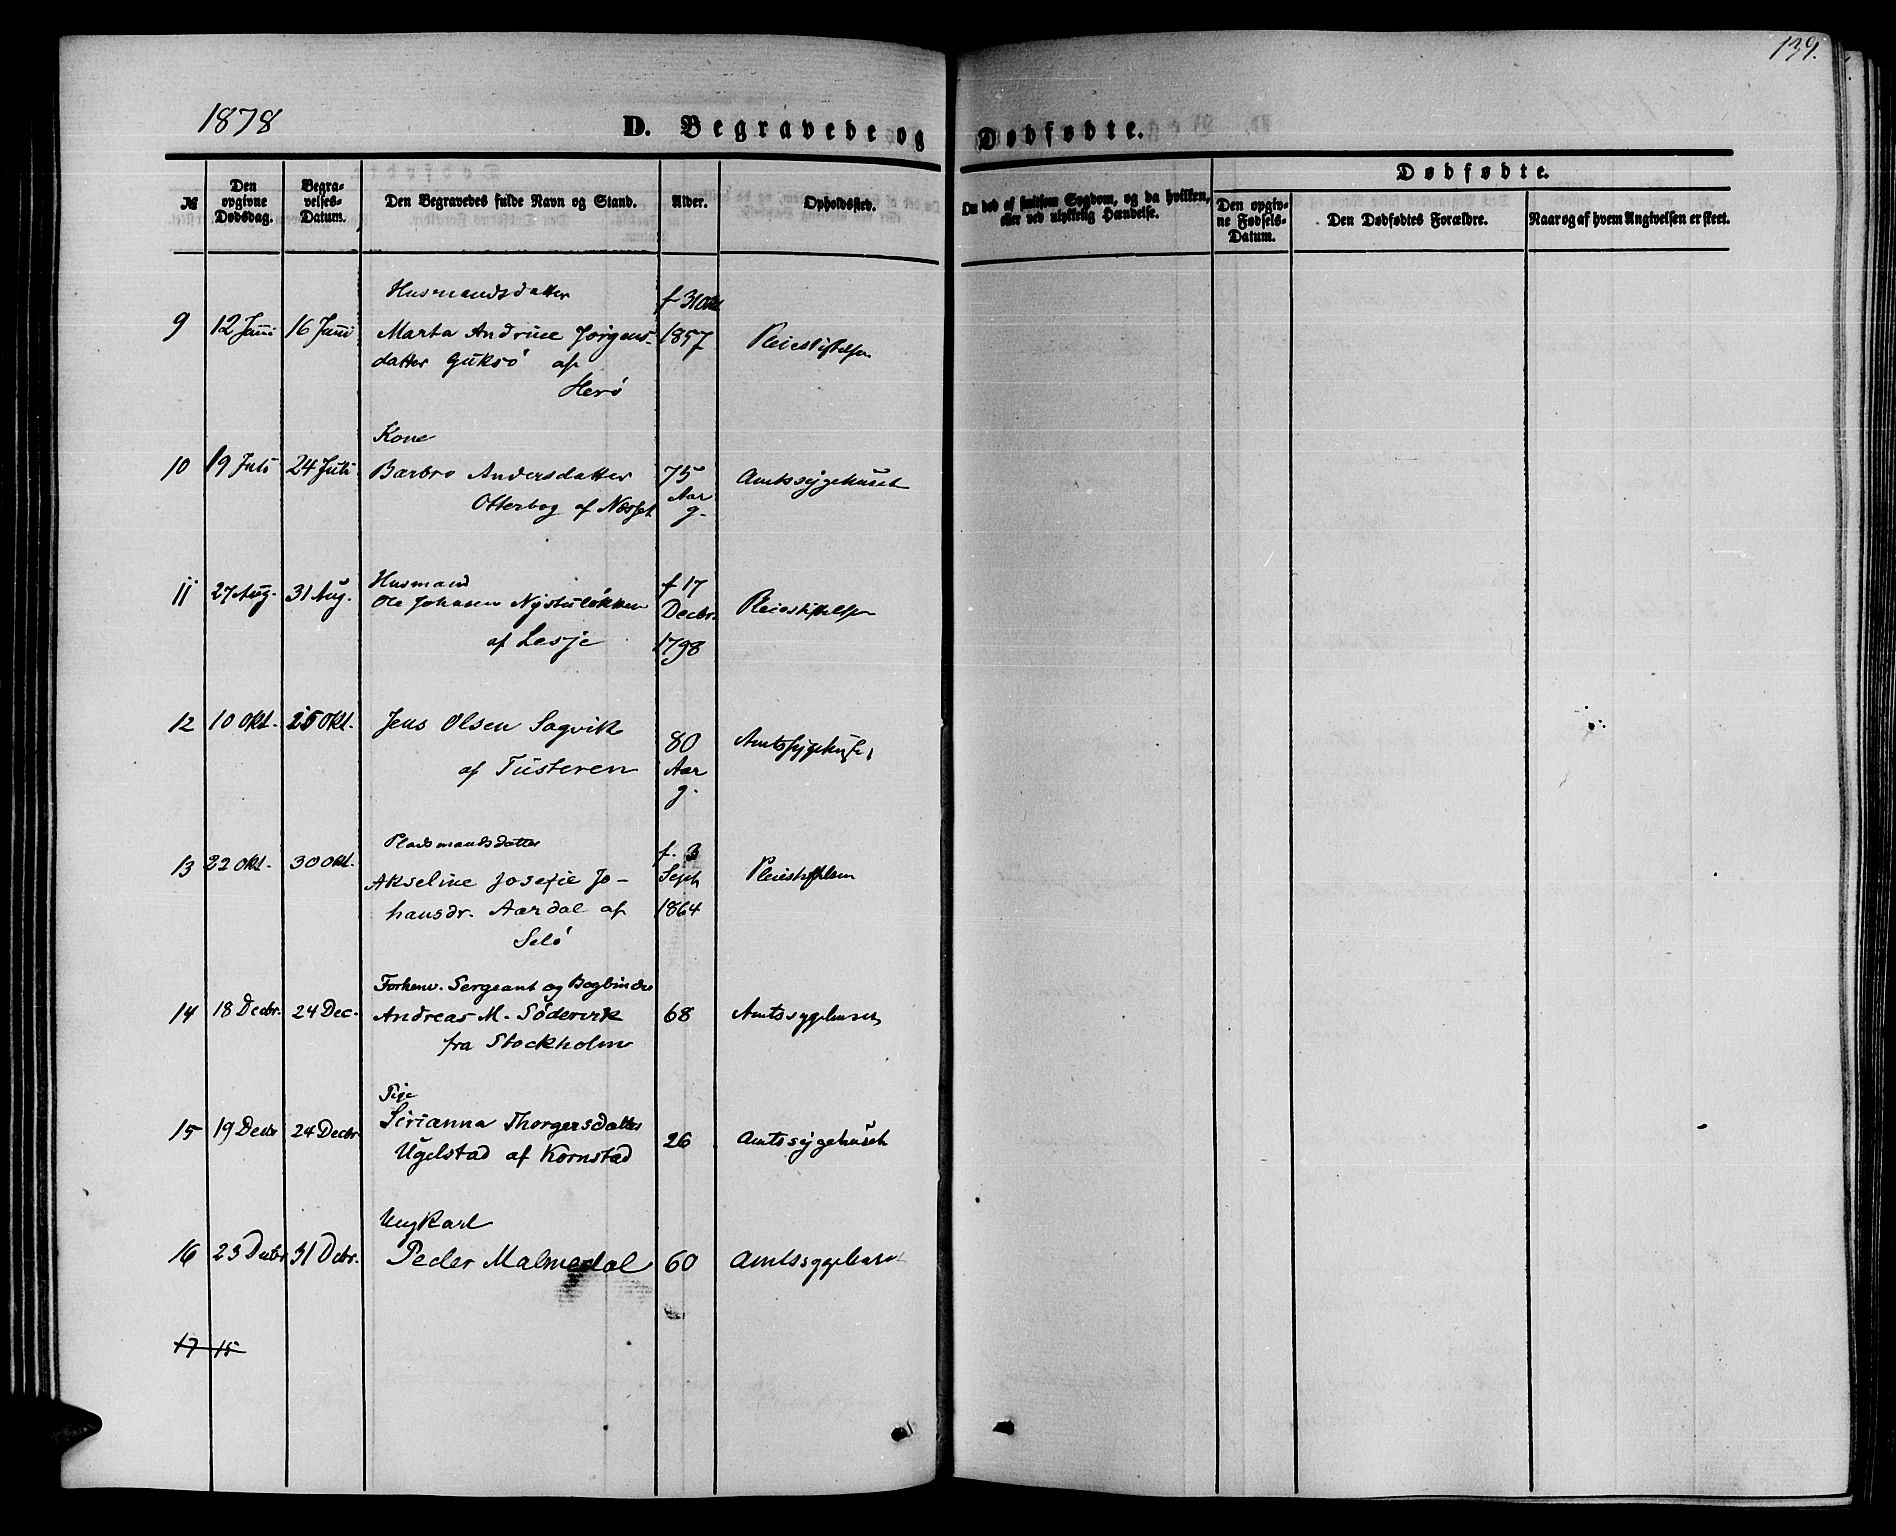 139.
1878
D. Begravede og Dødfødte.
№
Den opgivne Dødsdag.
Begravelses-Datum.
Den Begravedes fulde Navn og Stand.
Alder.
Opholdssted.
Om død af smitsom Sygdom, og da hvilken, eller ved ulykkelig Hændelse.
Dødfødte.
Den opgivne Fødsels-Datum.
Den Dødfødtes Forældre.
Naar og af hvem Angivelsen er skeet.
Husmandsdatter
9 12 Juni 16 Juni Marta Andrine Jørgens- f 31 Okt 1857 Pleiestiftelsen
datter Guksø af
Herø
Kone
10 19 Juli 24 Juli Barbro Andersdatter 75 Aar g. Amtssygehuset
Otterbog af Nesset
Husmand
11 27 Aug. 31 Aug. Ole Johnsen Nystuløkken f 17 Decbr. 1798 Pleiestiftelsen
af Lesje
12 10 Okt. 25 Okt. Jens Olsen Sagvik 80 Aar g. Amtssygehuset
af Tusteren
Pladsmandsdatter
13 22 Okt. 30 Okt. Akseline Josefie Jo- f. 3 Sept 1864 Pleiestiftelsen
hansdr. Aardal af
Selø
Forhenv. Sergeant og Bogbinder
14 18 Decbr. 24 Dec. Andreas M. Södervik 68 Amtssygehuset
fra Stockholm
Pige
15 19 Decbr 24 Decbr Sirianna Thorgersdatter 26 Amtssygehuset
Ugelstad af Kornstad
Ungkarl
16 23 Decbr 31 Decbr. Peder Malmedal 60 Amtssygehuset
17 15